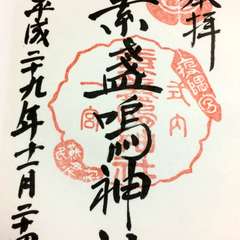 奉拝
素盞嗚神社
平成二十九年十一月二十四
式内
蘇民